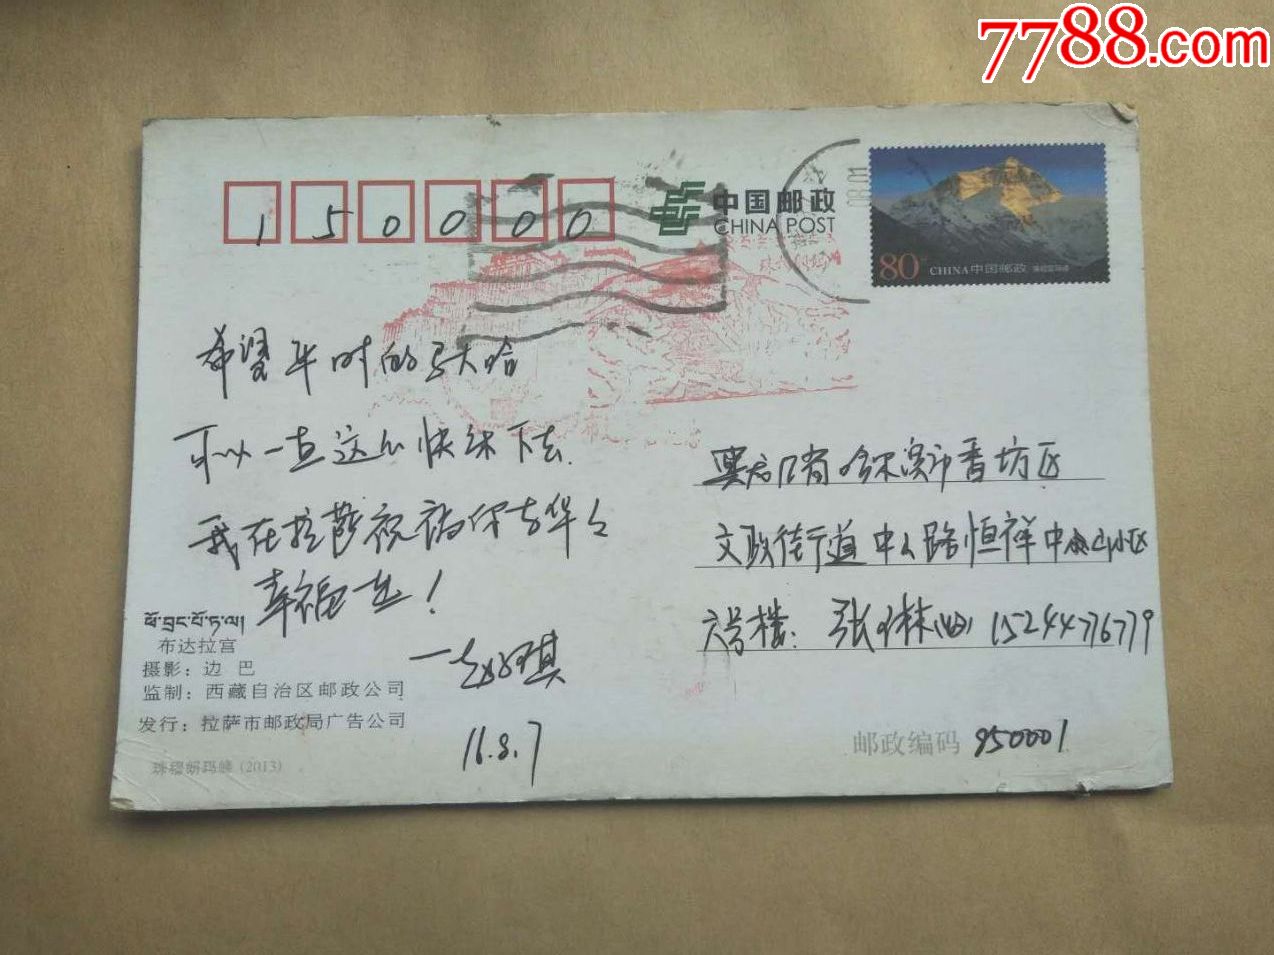 7788.com
150000
中国邮政
CHINA POST
80分 CHINA 中国邮政 珠穆朗玛峰
希望平时的马大哈
可以一直这么快乐下去.
我在拉萨祝福你
幸福一生!
16.8.7
ཕོ་བྲང་པོ་ཏ་ལ།
布达拉宫
摄影：边 巴
监制：西藏自治区邮政公司
发行：拉萨市邮政局广告公司
珠穆朗玛峰 (2013)
黑龙江省哈尔滨市香坊区
文政街街道中山路恒祥小区
六号楼. 张琳(收) 15244776779
邮政编码 850001